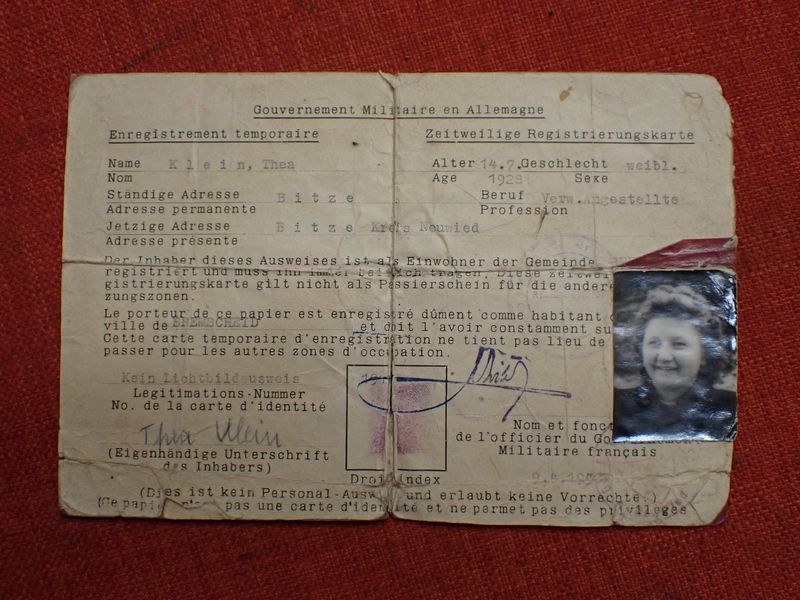 Gouvernement Militaire en Allemagne
Enregistrement temporaire Zeitweilige Registrierungskarte
Name Klein, Thea Alter 14.7. Geschlecht weibl.
Nom Age 1928 Sexe
Ständige Adresse Bitze Beruf Verw.Angestellte
Adresse permanente Profession
Jetzige Adresse Bitze Kreis Neuwied
Adresse présente
Der Inhaber dieses Ausweises ist als Einwohner der Gemeinde
registriert und muss ihn immer bei sich tragen. Diese zeitwei
gistrierungskarte gilt nicht als Passierschein für die andere
zungszonen.
Le porteur de ce papier est enregistré dûment comme habitant d
ville de et doit l'avoir constamment su
Cette carte temporaire d'enregistration ne tient pas lieu de
passer pour les autres zones d'occupation.
Kein Lichtbildausweis
Legitimations-Nummer
No. de la carte d'identité
Thea Klein
(Eigenhändige Unterschrift
des Inhabers)
Nom et fonct
de l'officier du Gouvernement
Militaire français
Droit index
(Dies ist kein Personal-Ausweis und erlaubt keine Vorrechte.)
(Ce papier n'est pas une carte d'identité et ne permet pas des privilèges